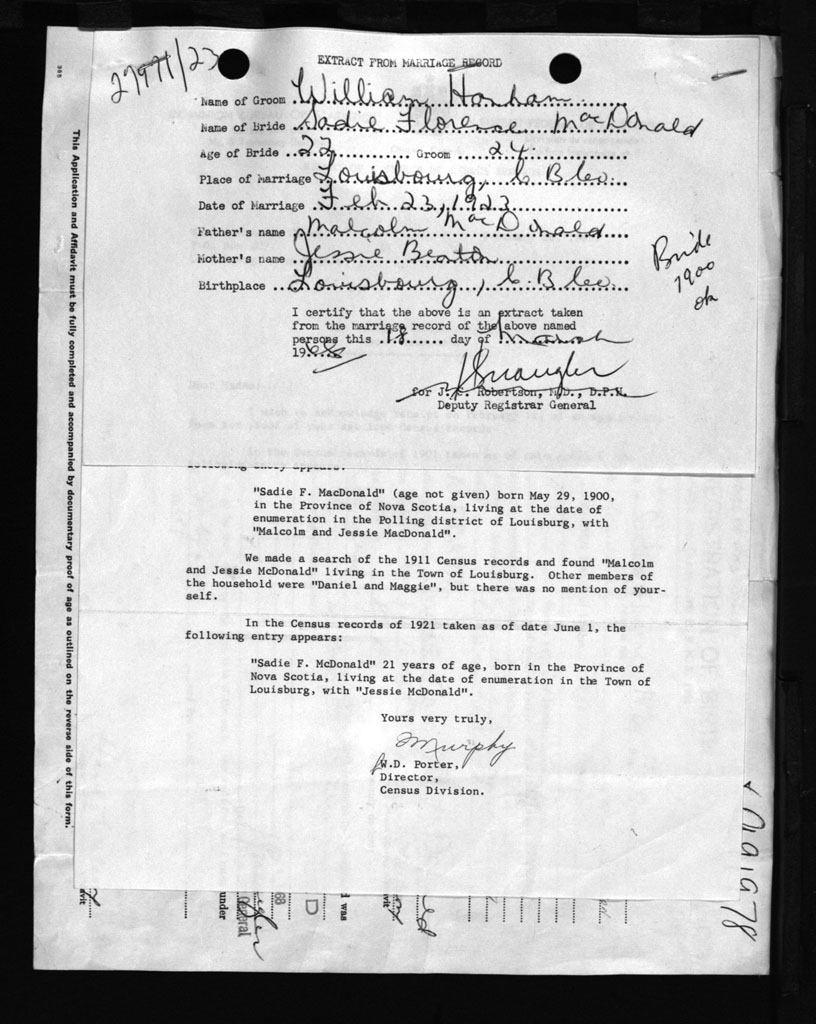 27971/23
EXTRACT FROM MARRIAGE RECORD
Name of Groom William Hanham
Name of Bride Sadie Florence MacDonald
Age of Bride 22 Groom 24
Place of Marriage Louisbourg, C B Co.
Date of Marriage Feb 23, 1923
Father's name Malcolm MacDonald
Mother's name Jessie Beaton
Birthplace Louisbourg, C. B Co.
Bride
1900
ok
I certify that the above is an extract taken
from the marriage record of the above named
persons this 18 day of March
1968
for J. Robertson, M.D., D.P.H.
Deputy Registrar General
following entry appears:
"Sadie F. MacDonald" (age not given) born May 29, 1900,
in the Province of Nova Scotia, living at the date of
enumeration in the Polling district of Louisburg, with
"Malcolm and Jessie MacDonald".
We made a search of the 1911 Census records and found "Malcolm
and Jessie McDonald" living in the Town of Louisburg. Other members of
the household were "Daniel and Maggie", but there was no mention of your-
self.
In the Census records of 1921 taken as of date June 1, the
following entry appears:
"Sadie F. McDonald" 21 years of age, born in the Province of
Nova Scotia, living at the date of enumeration in the Town of
Louisburg, with "Jessie McDonald".
Yours very truly,
Murphy
W.D. Porter,
Director,
Census Division.
This Application and Affidavit must be fully completed and accompanied by documentary proof of age as outlined on the reverse side of this form.
under
68
D
was